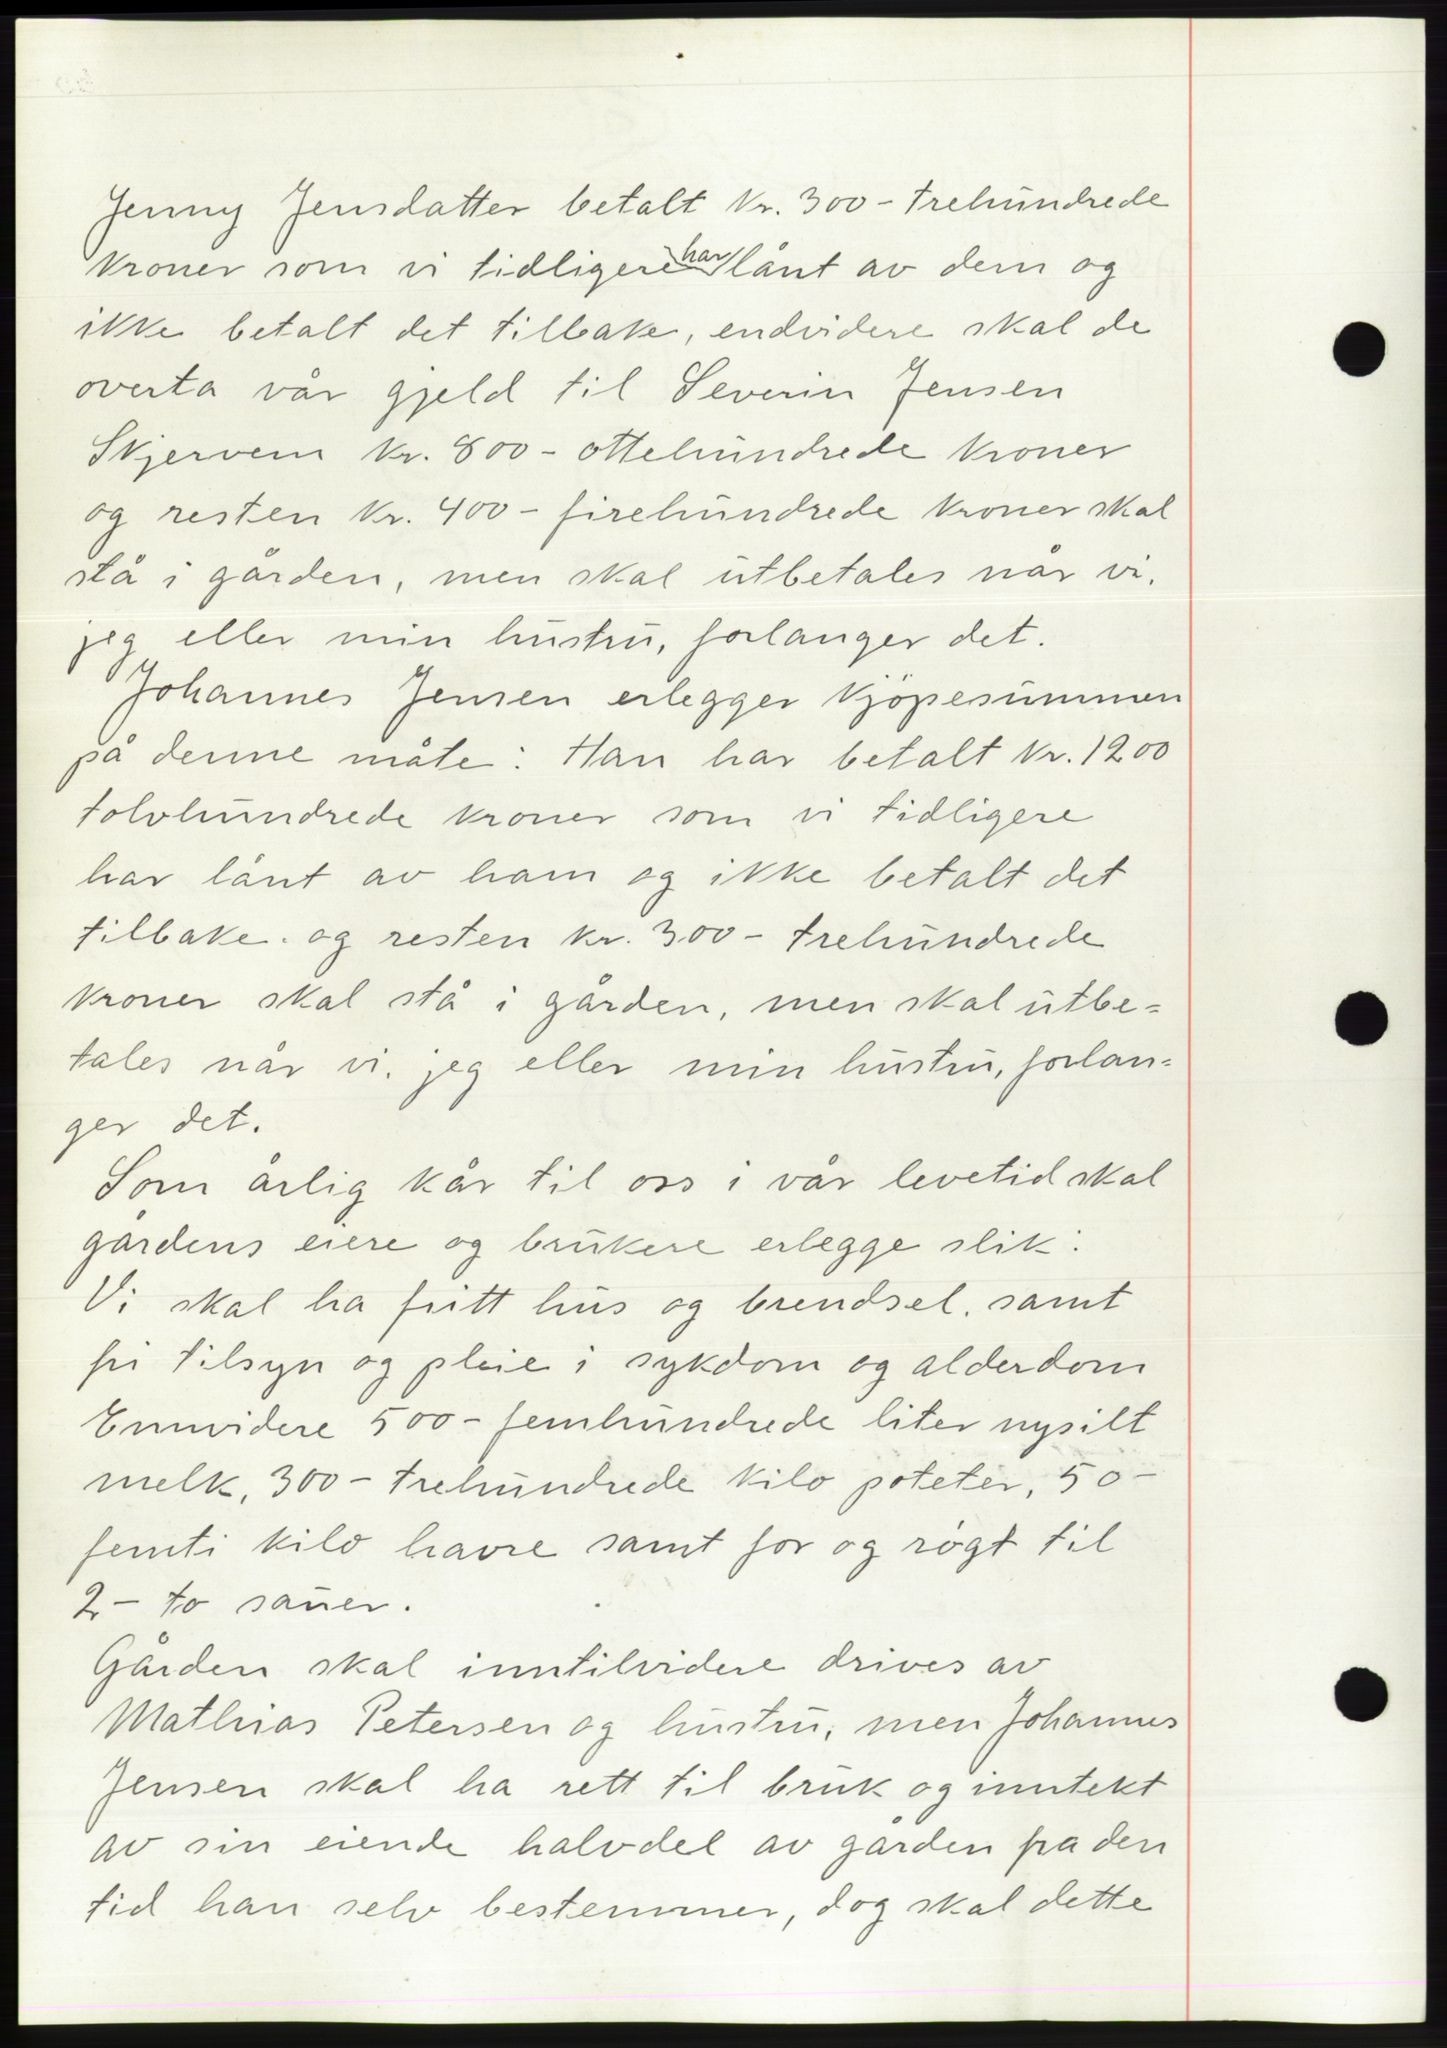 Jenny Jensdatter betalt kr. 300 - trehundrede
kroner som vi tidligere har lånt av dem og
ikke betalt det tilbake, endvidere skal de
overta vår gjeld til Severin Jensen
Skjervem kr. 800 - ottehundrede kroner
og resten kr. 400 - firehundrede kroner skal
stå i gården, men skal utbetales når vi,
jeg eller min hustru, forlanger det.
Johannes Jensen erlegger kjöpesummen
på denne måte: Han har betalt kr. 1200
tolvhundrede kroner som vi tidligere
har lånt av ham og ikke betalt det
tilbake. og resten kr. 300 - trehundrede
kroner skal stå i gården, men skal utbe=
tales når vi, jeg eller min hustru, forlan=
ger det.
Som årlig kår til oss i vår levetid skal
gårdens eiere og brukere erlegge slik:
Vi skal ha fritt hus og brendsel, samt
fri tilsyn og pleie i sykdom og alderdom
Ennvidere 500 - femhundrede liter nysilt
melk, 300 - trehundrede kilo poteter, 50 -
femti kilo havre samt for og rögt til
2 - to sauer.
Gården skal inntilvidere drives av
Mathias Petersen og hustru, men Johannes
Jensen skal ha rett til bruk og inntekt
av sin eiende halvdel av gården fra den
tid han selv bestemmer, dog skal dette